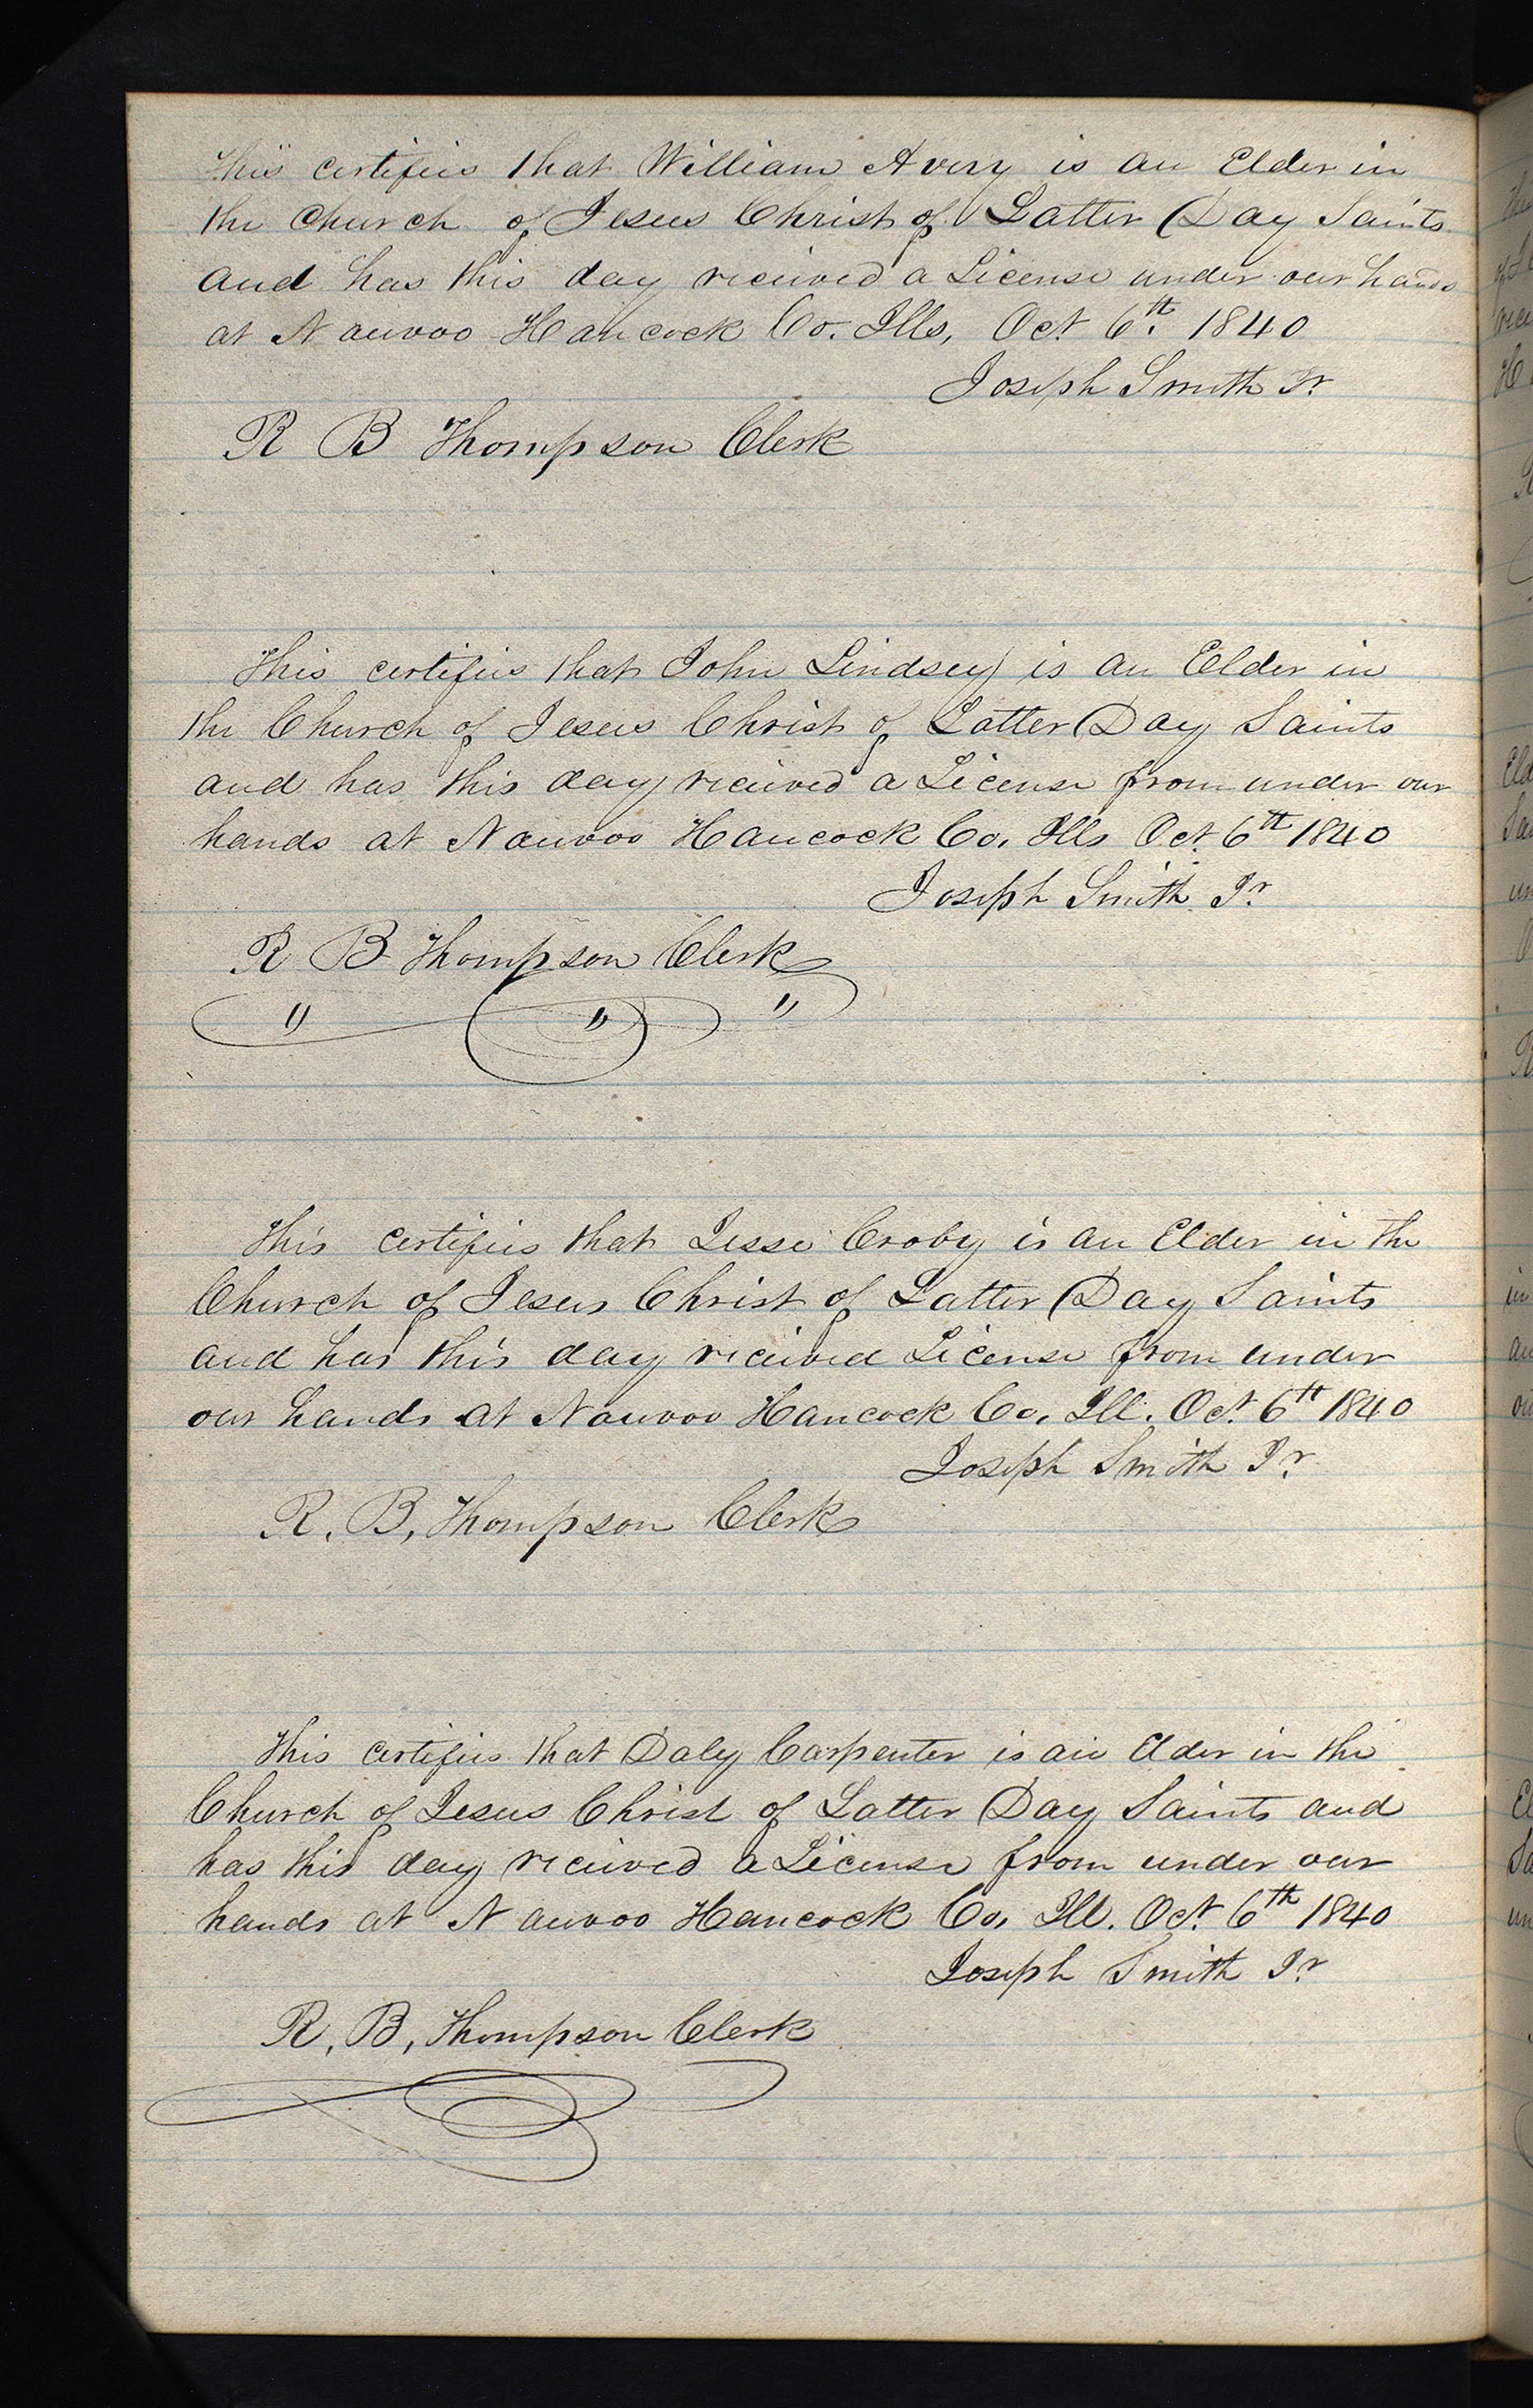 This certifies that William Avery is an Elder in
the Church of Jesus Christ of Latter Day Saints
and has this day received a License under our hands
at Nauvoo Hancock Co. Ills, Oct 6th. 1840
Joseph Smith Jr
R B Thompson Clerk
This certifies that John Lindsey is an Elder in
the Church of Jesus Christ of Latter Day Saints
and has this day received a License from under our
hands at Nauvoo Hancock Co, Ills Oct. 6th 1840
Joseph Smith Jr
R B Thompson Clerk
" " "
This certifies that Jesse Croby is an Elder in the
Church of Jesus Christ of Latter Day Saints
and has this day received License from under
our hands at Nauvoo Hancock Co, Ill. Oct. 6th 1840
Joseph Smith Jr
R. B, Thompson Clerk
This certifies that Daly Carpenter is an Elder in the
Church of Jesus Christ of Latter Day Saints and
has this day received a License from under our
hands at Nauvoo Hancock Co, Ill. Oct. 6th 1840
Joseph Smith Jr
R, B, Thompson Clerk